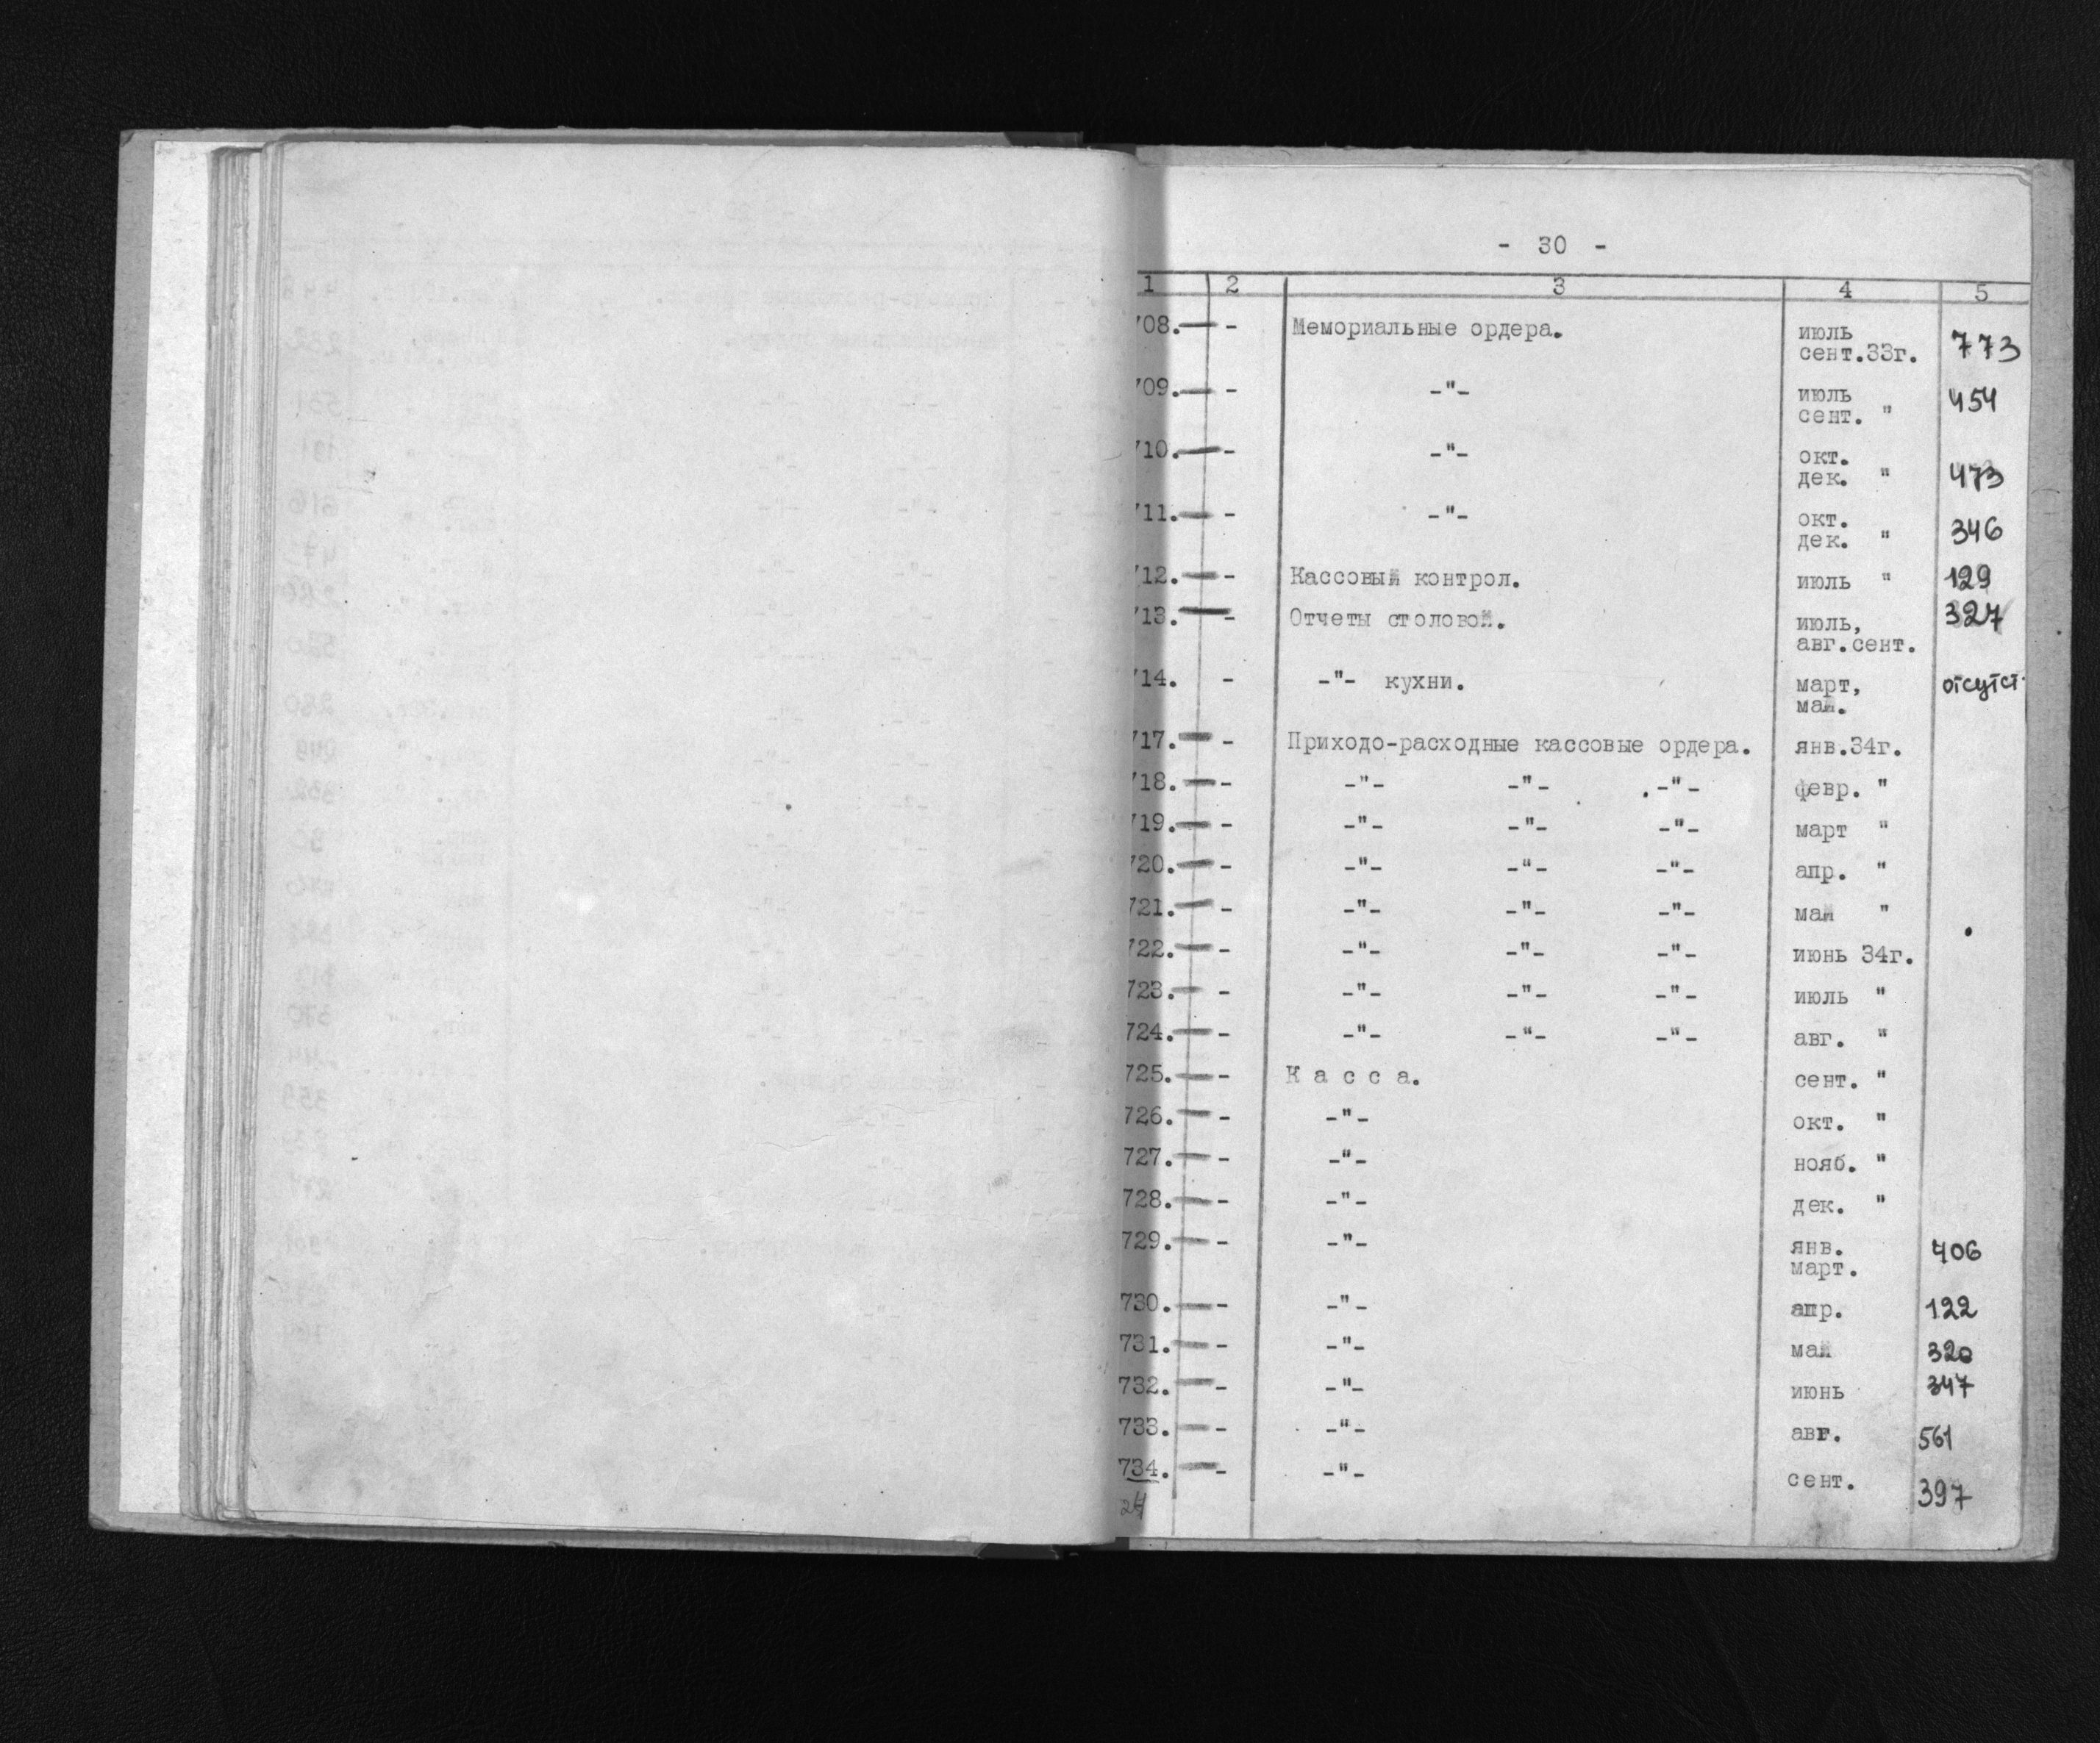 - 30 -
1 2 3 4 5
708. - Мемориальные ордера. июль
сент.33г. 773
709. - -"- июль
сент. " 454
710. - -"- окт.
дек. " 473
711. - -"- окт.
дек. " 346
712. - Кассовый контрол. июль " 129
713. - Отчеты столовой. июль,
авг.сент. 327
714. - -"- кухни. март,
май. отсутст.
717. - Приходо-расходные кассовые ордера. янв.34г.
718. - -"- -"- -"- февр. "
719. - -"- -"- -"- март "
720. - -"- -"- -"- апр. "
721. - -"- -"- -"- май "
722. - -"- -"- -"- июнь 34г.
723. - -"- -"- -"- июль "
724. - -"- -"- -"- авг. "
725. - К а с с а. сент. "
726. - -"- окт. "
727. - -"- нояб. "
728. - -"- дек. "
729. - -"- янв.
март. 406
730. - -"- апр. 122
731. - -"- май 320
732. - -"- июнь 347
733. - -"- авг. 561
734. - -"- сент. 397